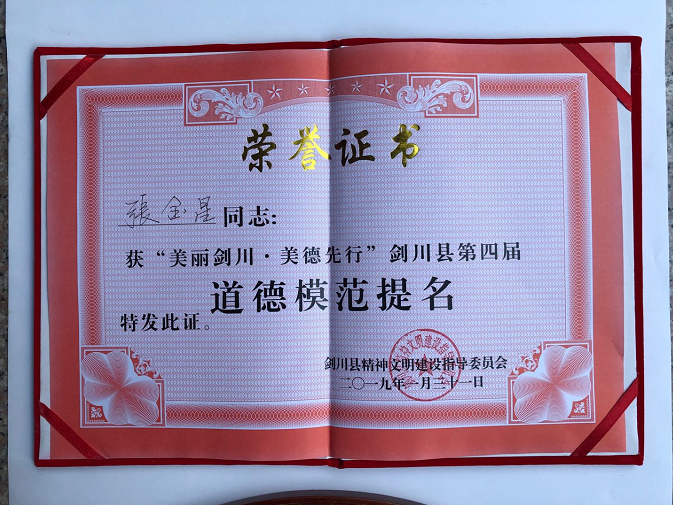 荣誉证书
張金星同志:
获“美丽剑川·美德先行”剑川县第四届
道德模范提名
特发此证。
剑川县精神文明建设指导委员会
二〇一九年一月三十一日